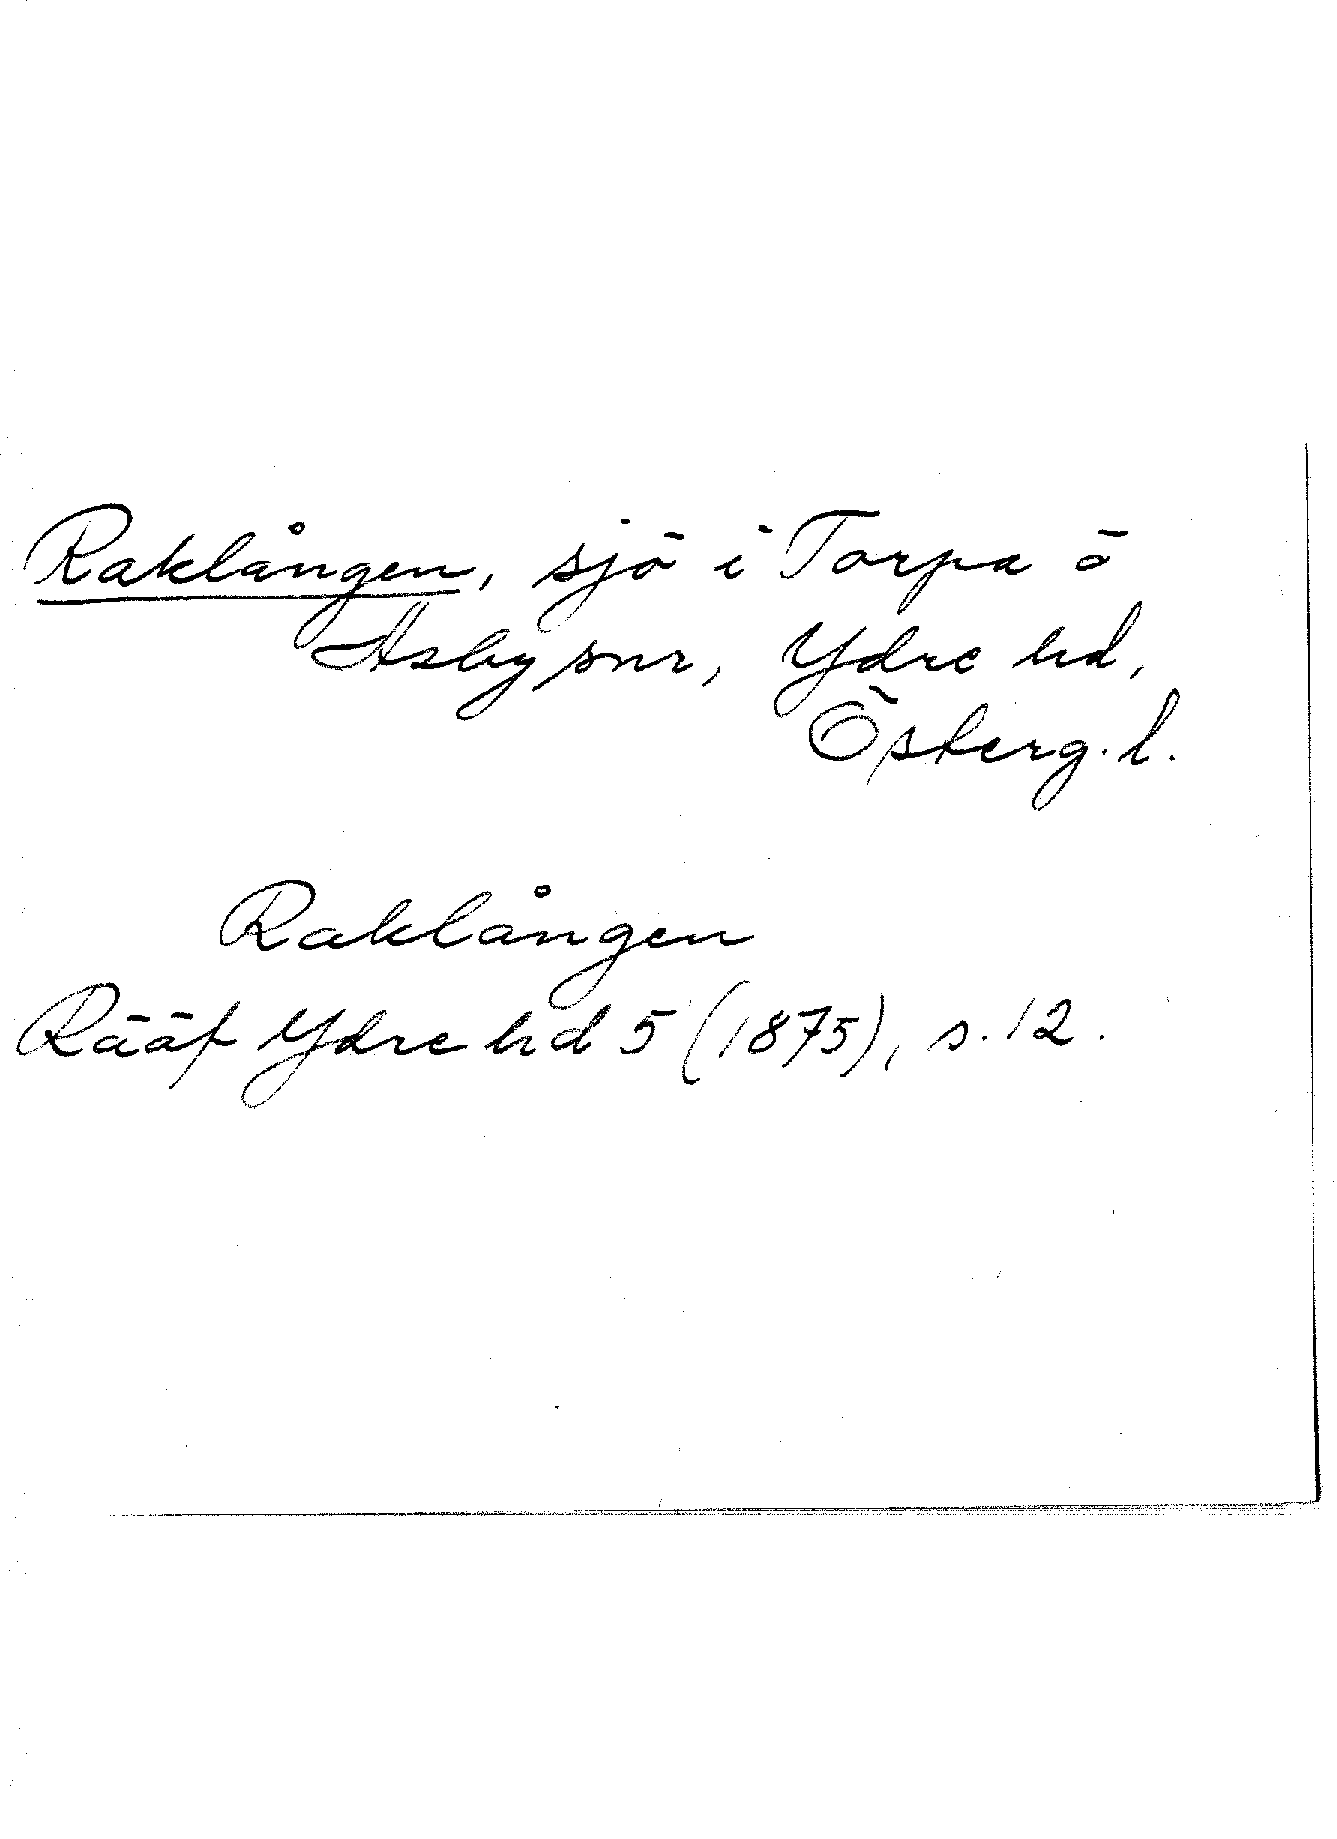 Raklången, sjö i Torpa o
Asby snr, Ydre hd,
Österg. l.
Raklången
Rääf Ydre hd 5 (1875), s. 12.